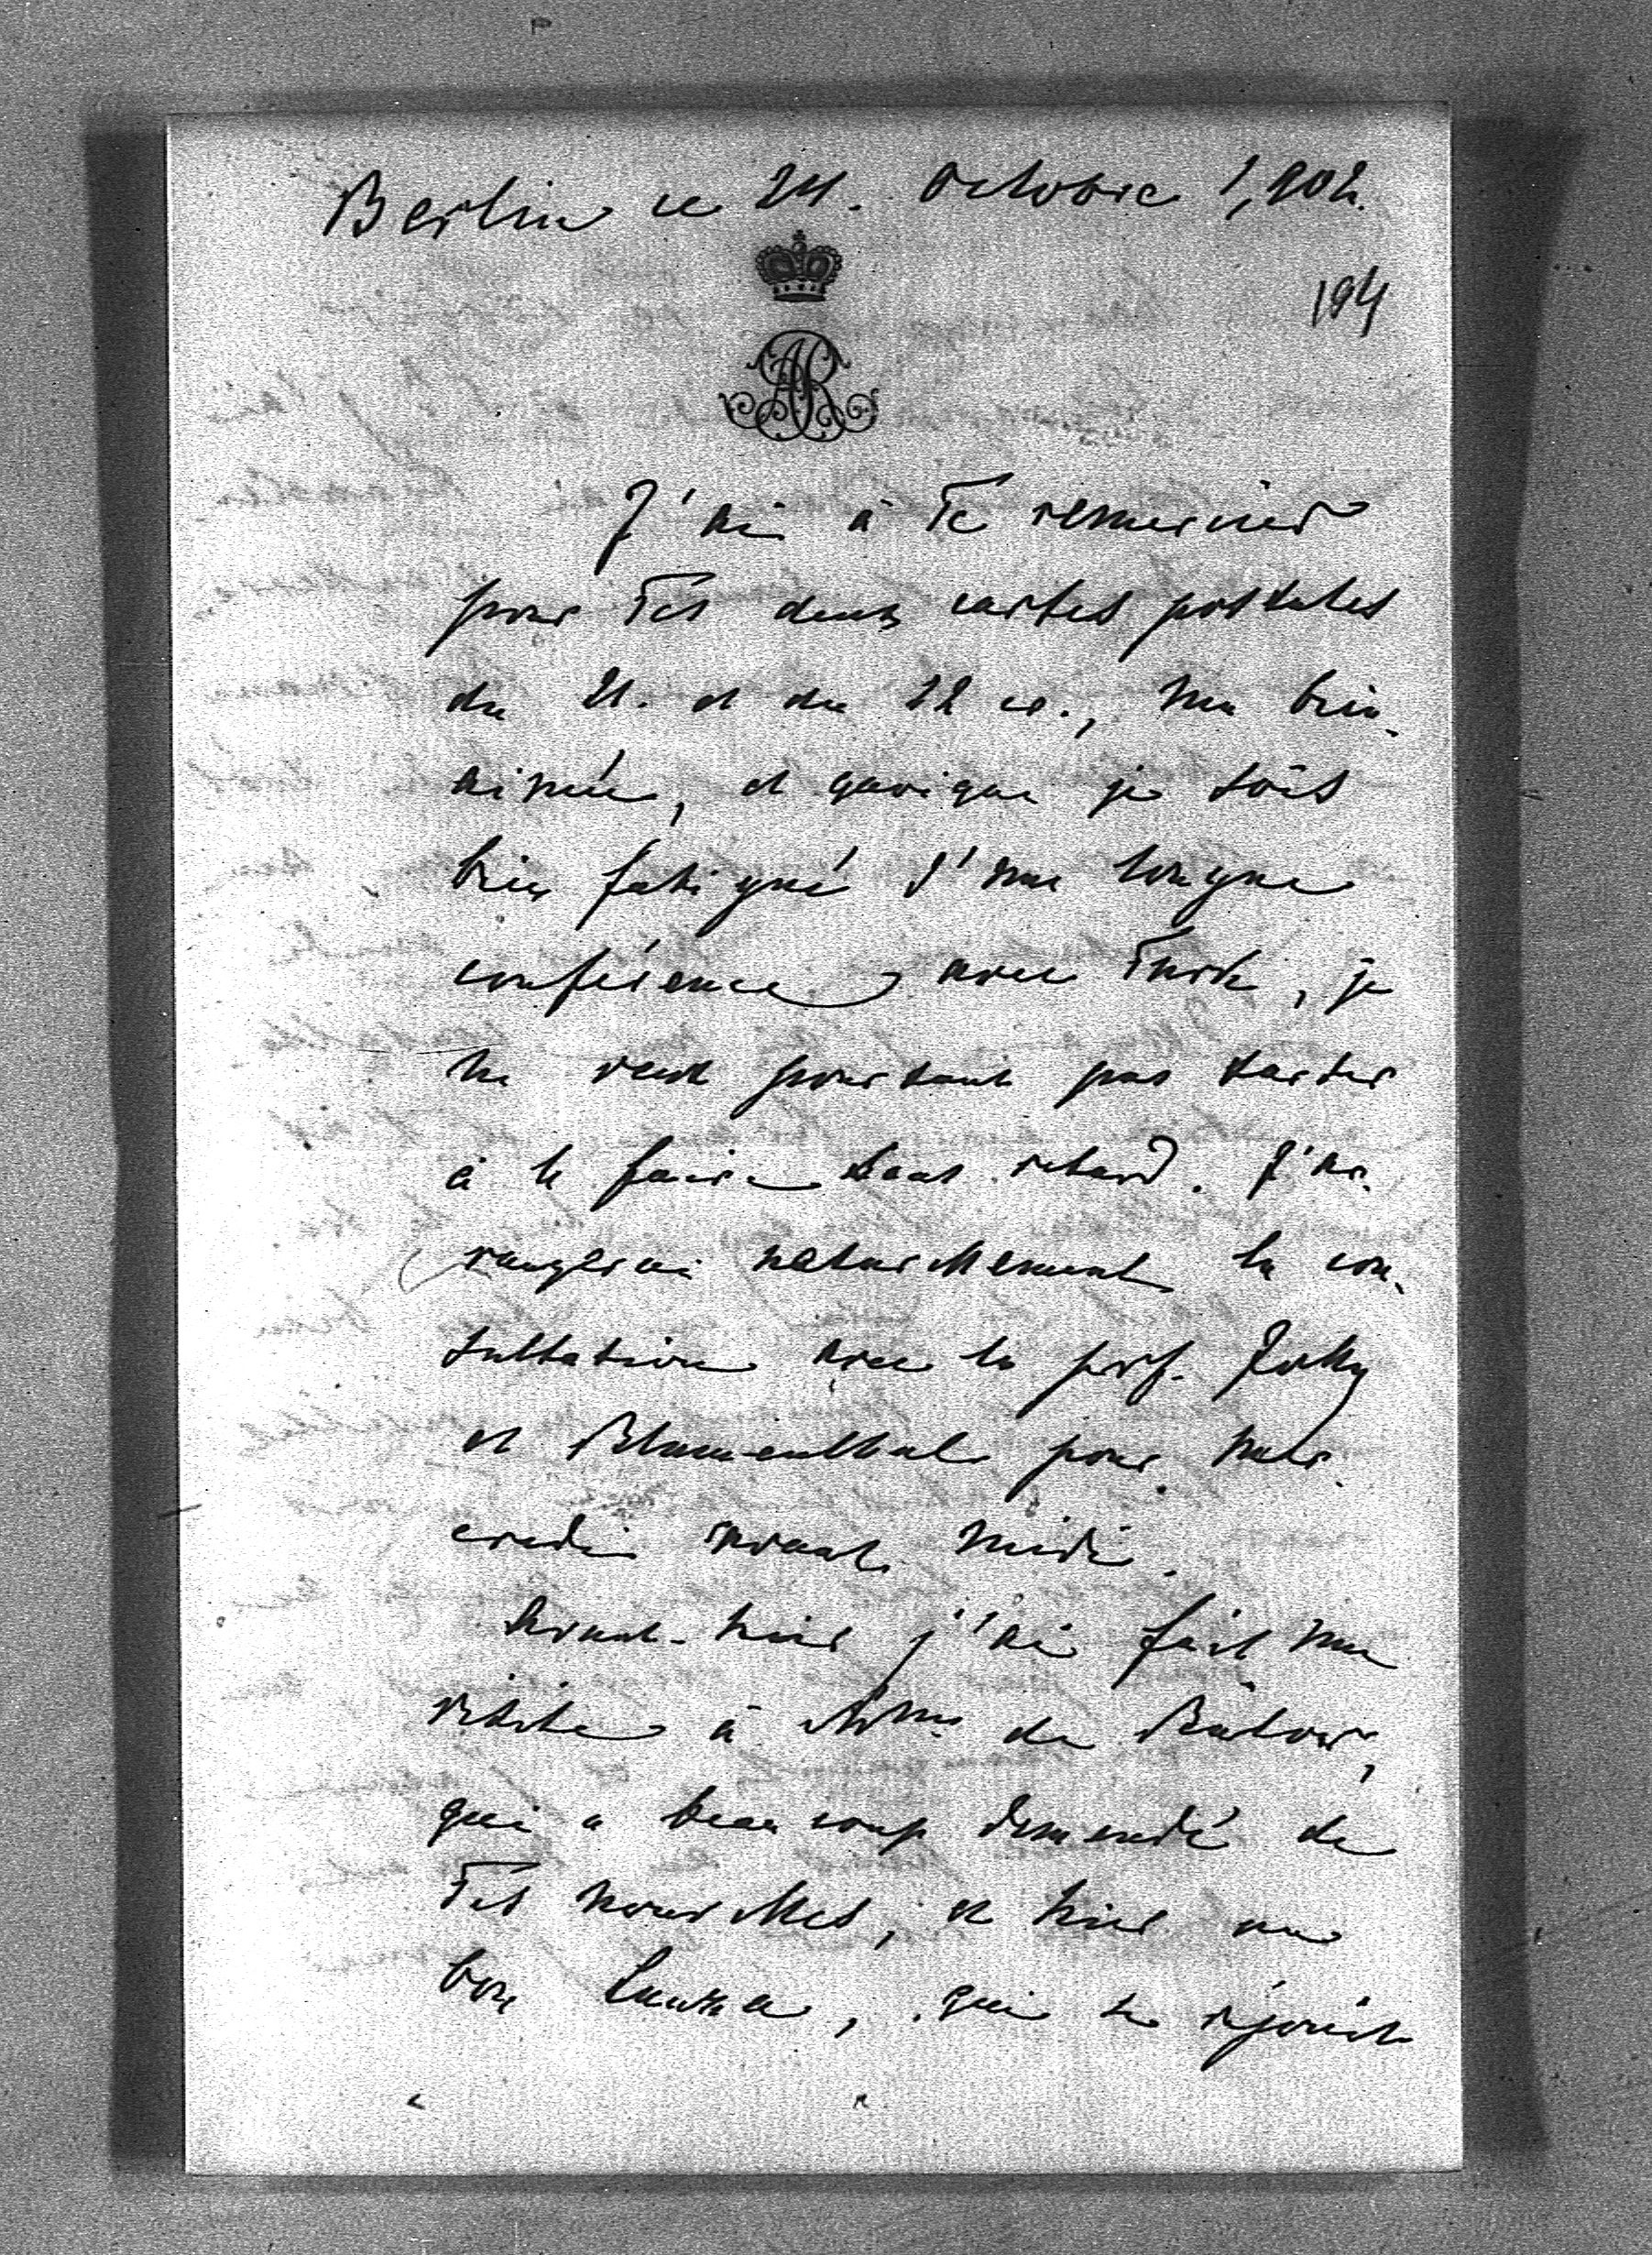 Berlin ce 24. Octobre 1,902.
194
AR
J'ai à Te remercier
pour Tes deux cartes postales
du 21. et du 22 cr., ma bien-
aimée, et quoique je sois
bien fatigué d'une longue
conférence avec Turk, je
ne veux pourtant pas tarder
à le faire sans retard. J'ar-
rangerai naturellement la con-
sultation avec le prof. Jolly
et Blumenthal pour mer-
credi avant midi.
Avant-hier j'ai fait ma
visite à Mme de Bülow,
qui a beaucoup demandé de
Tes nouvelles, et hier au
bon qui se réjouit